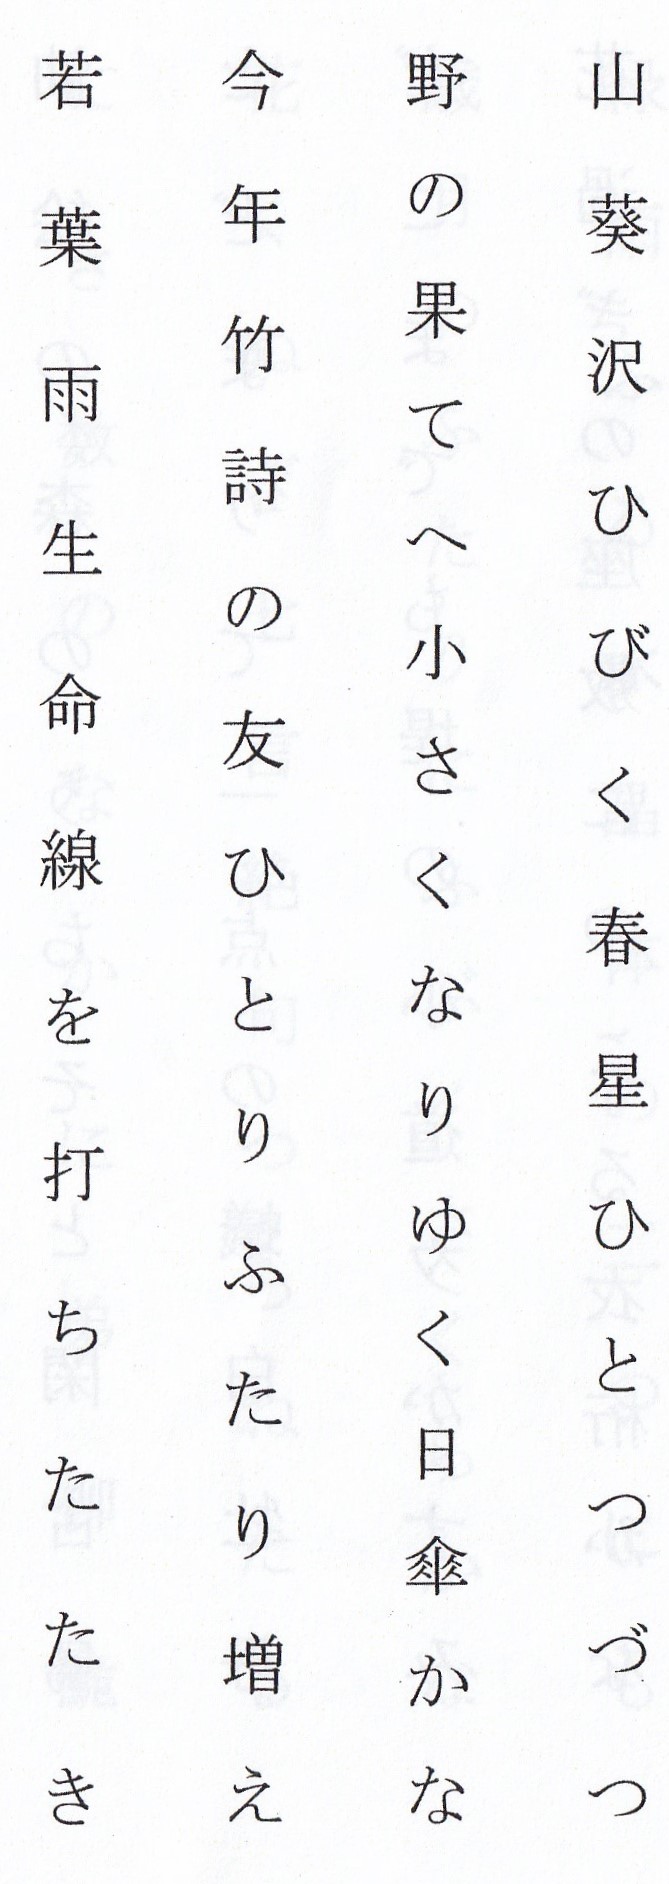 山葵沢ひびく春星ひとつづつ
野の果てへ小さくなりゆく日傘かな
今年竹詩の友ひとりふたり増え
若葉雨生命線を打ちたたき